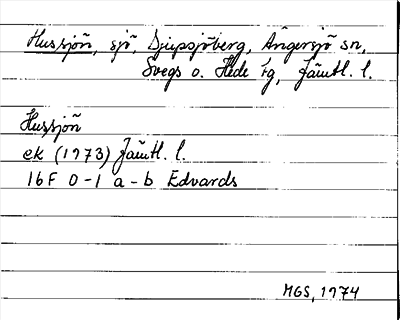 Hussjön, sjö, Djupsjöberg, Ängersjö sn,
Svegs o. Hede fg, Jämtl. l.
Hussjön
ek (1973) Jämtl. l.
16F 0-1 a-b Edvards
MGS, 1974